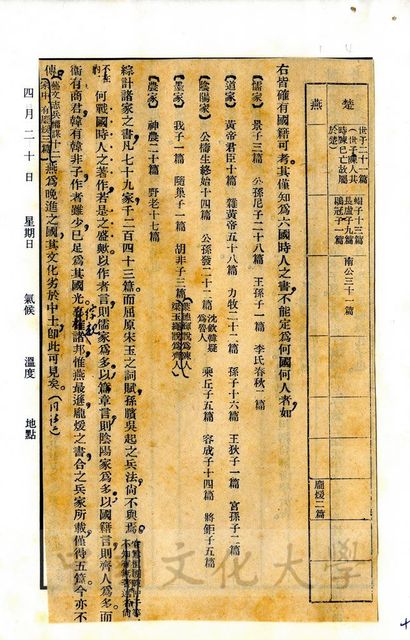 楚
世子二十一篇
(世子陳人其時陳已亡故屬於楚)
蜎子十三篇
長盧子九篇
鶡冠子一篇
南公三十一篇
燕
龐煖二篇
右皆確有國籍可考其僅知為六國時人之書不能定為何國何人者如
【儒家】 景子三篇 公孫尼子二十八篇 王孫子一篇 李氏春秋二篇
【道家】 黃帝君臣十篇 雜黃帝五十八篇 力牧二十二篇 孫子十六篇 王狄子一篇 宮孫子二篇
【陰陽家】 公檮生終始十四篇 公孫發二十二篇 乘丘子五篇 容成子十四篇 將鉅子五篇
【墨家】 我子一篇 隨巢子一篇 胡非子三篇
【農家】 神農二十篇 野老十七篇
綜計諸家之書凡七十九家千二百四十三篇而屈原宋玉之詞賦孫臏吳起之兵法尚不與焉
何戰國時人之著作若是之盛歟以作者言則儒家為多以篇章言則陰陽家為多以國籍言則齊人為多而
衞有商君韓有韓非子作者雖少已足為其國光
諸邦惟燕最遜龐煖之書合之兵家所載僅得五篇今亦不
傳
燕為晚進之國其文化劣於中土即此可見矣
四月二十日 星期日 氣候 溫度 地點
文化大學